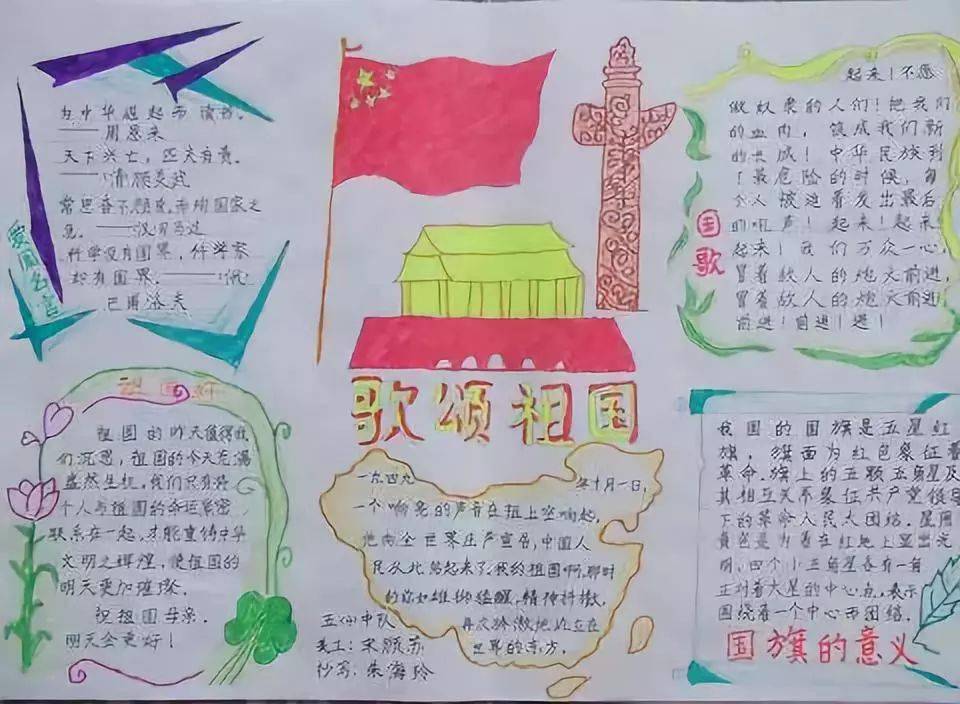 为中华崛起而读书。
——周恩来
天下兴亡，匹夫有责。
——清顾炎武
常思奋不顾身，而殉国家之
急。——汉司马迁
科学没有国界，科学家
却有国界。——
巴甫洛夫
爱国名言
歌颂祖国
起来！不愿
做奴隶的人们！把我们
的血肉，筑成我们新
的长城！中华民族到
了最危险的时候，每
个人被迫着发出最后
的吼声！起来！起来！
起来！我们万众一心，
冒着敌人的炮火前进，
冒着敌人的炮火前进！
前进！前进！进！
国歌
祖国好
祖国的昨天值得我
们沉思，祖国的今天充满
盎然生机，我们只有将
个人与祖国的命运紧密
联系在一起，才能重铸中华
文明之辉煌，使祖国的
明天更加璀璨。
祝祖国母亲，
明天会更好！
一九四九年十月一日，
一个响亮的声音在祖上空响起，
他向全世界庄严宣告，中国人
民从此站起来了。我的祖国啊，那时
的你如雄狮猛醒，精神抖擞，
再次骄傲地屹立在
世界的东方。
中队
美工：宋颐苏
抄写：朱海玲
我国的国旗是五星红
旗，旗面为红色象征着
革命。旗上的五颗五角星及
其相互关系象征共产党领导
下的革命人民大团结。星用
黄色是为着在红地上显出光
明，四个小五角星各有一角
正对着大星的中心点，表示
围绕着一个中心而团结。
国旗的意义